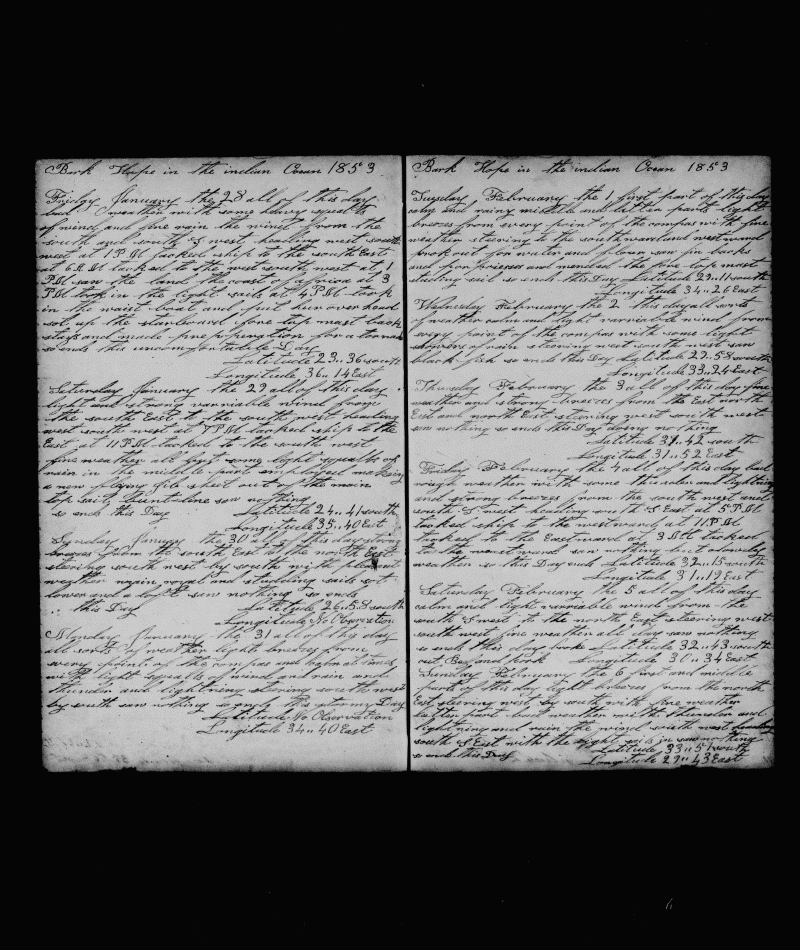 Bark Hope in the indian Ocean 1853
Friday January the 28 all of this day
bad weather with some heavy squalls
of wind and fine rain the wind from the
south and south S west heading west south
west at 1 PM tacked ship to the south East
at 6 AM tacked to the west south west at 1
PM saw the land the coast of africa at 3
PM took in the light sails at 4 PM took
in the waist boat and put her over head
set up the starboard fore top mast back
stays and made preparation for
so ends this uncomfortable Day
Latitude 23,, 36 south
Longitude 36,, 14 East
Saturday January the 29 all of this day
light and strong varriable wind from
the south East to the south west heading
west south west at 7 PM tacked ship to the
East at 11 PM tacked to the south west
fine weather all but some light squalls of
rain in the middle part employed making
a new flying jib sheet out of the main
top sail buntline saw nothing
so ends this Day Latitude 24,, 41 south
Longitude 35,, 40 East
Sunday January the 30 all of this day strong
breezes from the south East at the north East
stearing south west by south with pleasent
weather main royal and studding sails set
lower and aloft saw nothing so ends
this Day Latitude 26,, 58 south
Longitude No Observation
Monday January the 31 all of this day
all sorts of weather light breezes from
every point of the compass and calm at times
with light squalls of wind and rain and
thunder and lightning stearing south west
by south saw nothing so ends this stormy Day
Latitude No Observation
Longitude 34,, 40 East
Bark Hope in the indian Ocean 1853
Tuesday February the 1 first part of this day
calm and rainy middle and latter parts light
breezes from every point of the compas with fine
weather stearing to the southward and westward
broke out for water and saw fin backs
and porpoises and mended the fore top mast
studing sail so ends this Day Latitude 29,, 11 south
Longitude 34,, 26 East
Wednesday February the 2 this day all sorts
of weather calm and light varriable wind from
every point of the compas with some light
showers of rain stearing west south west saw
black fish so ends this Day Latitude 29,, 58 south
Longitude 33,, 24 East
Thursday February the 3 all of this day fine
weather and strong breezes from the East north
East and north East stearing west south west
saw nothing so ends this Day doing nothing
Latitude 31,, 42 south
Longitude 31,, 52 East
Friday February the 4 all of this day bad
rough weather with some thunder and lightning
and strong breezes from the south west and
south S west heading south S East at 5 PM
tacked ship to the westward at 11 PM
tacked to the Eastward at 3 AM tacked
to the westward saw nothing but
weather so this Day ends Latitude 32,, 15 south
Longitude 31,, 19 East
Saturday February the 5 all of this day
calm and light varriable wind from the
south S west to the north East stearing west
south west fine weather all day saw nothing
so ends this day broke Latitude 32,, 43 south
out Beef and Pork Longitude 30,, 34 East
Sunday February the 6 first and middle
parts of this day light breezes from the north
East stearing west by south with fine weather
latter part bad weather with thunder and
lightning and rain the wind south west
south S East with the light sails in saw nothing
so ends this Day Latitude 33,, 51 south
Longitude 29,, 43 East